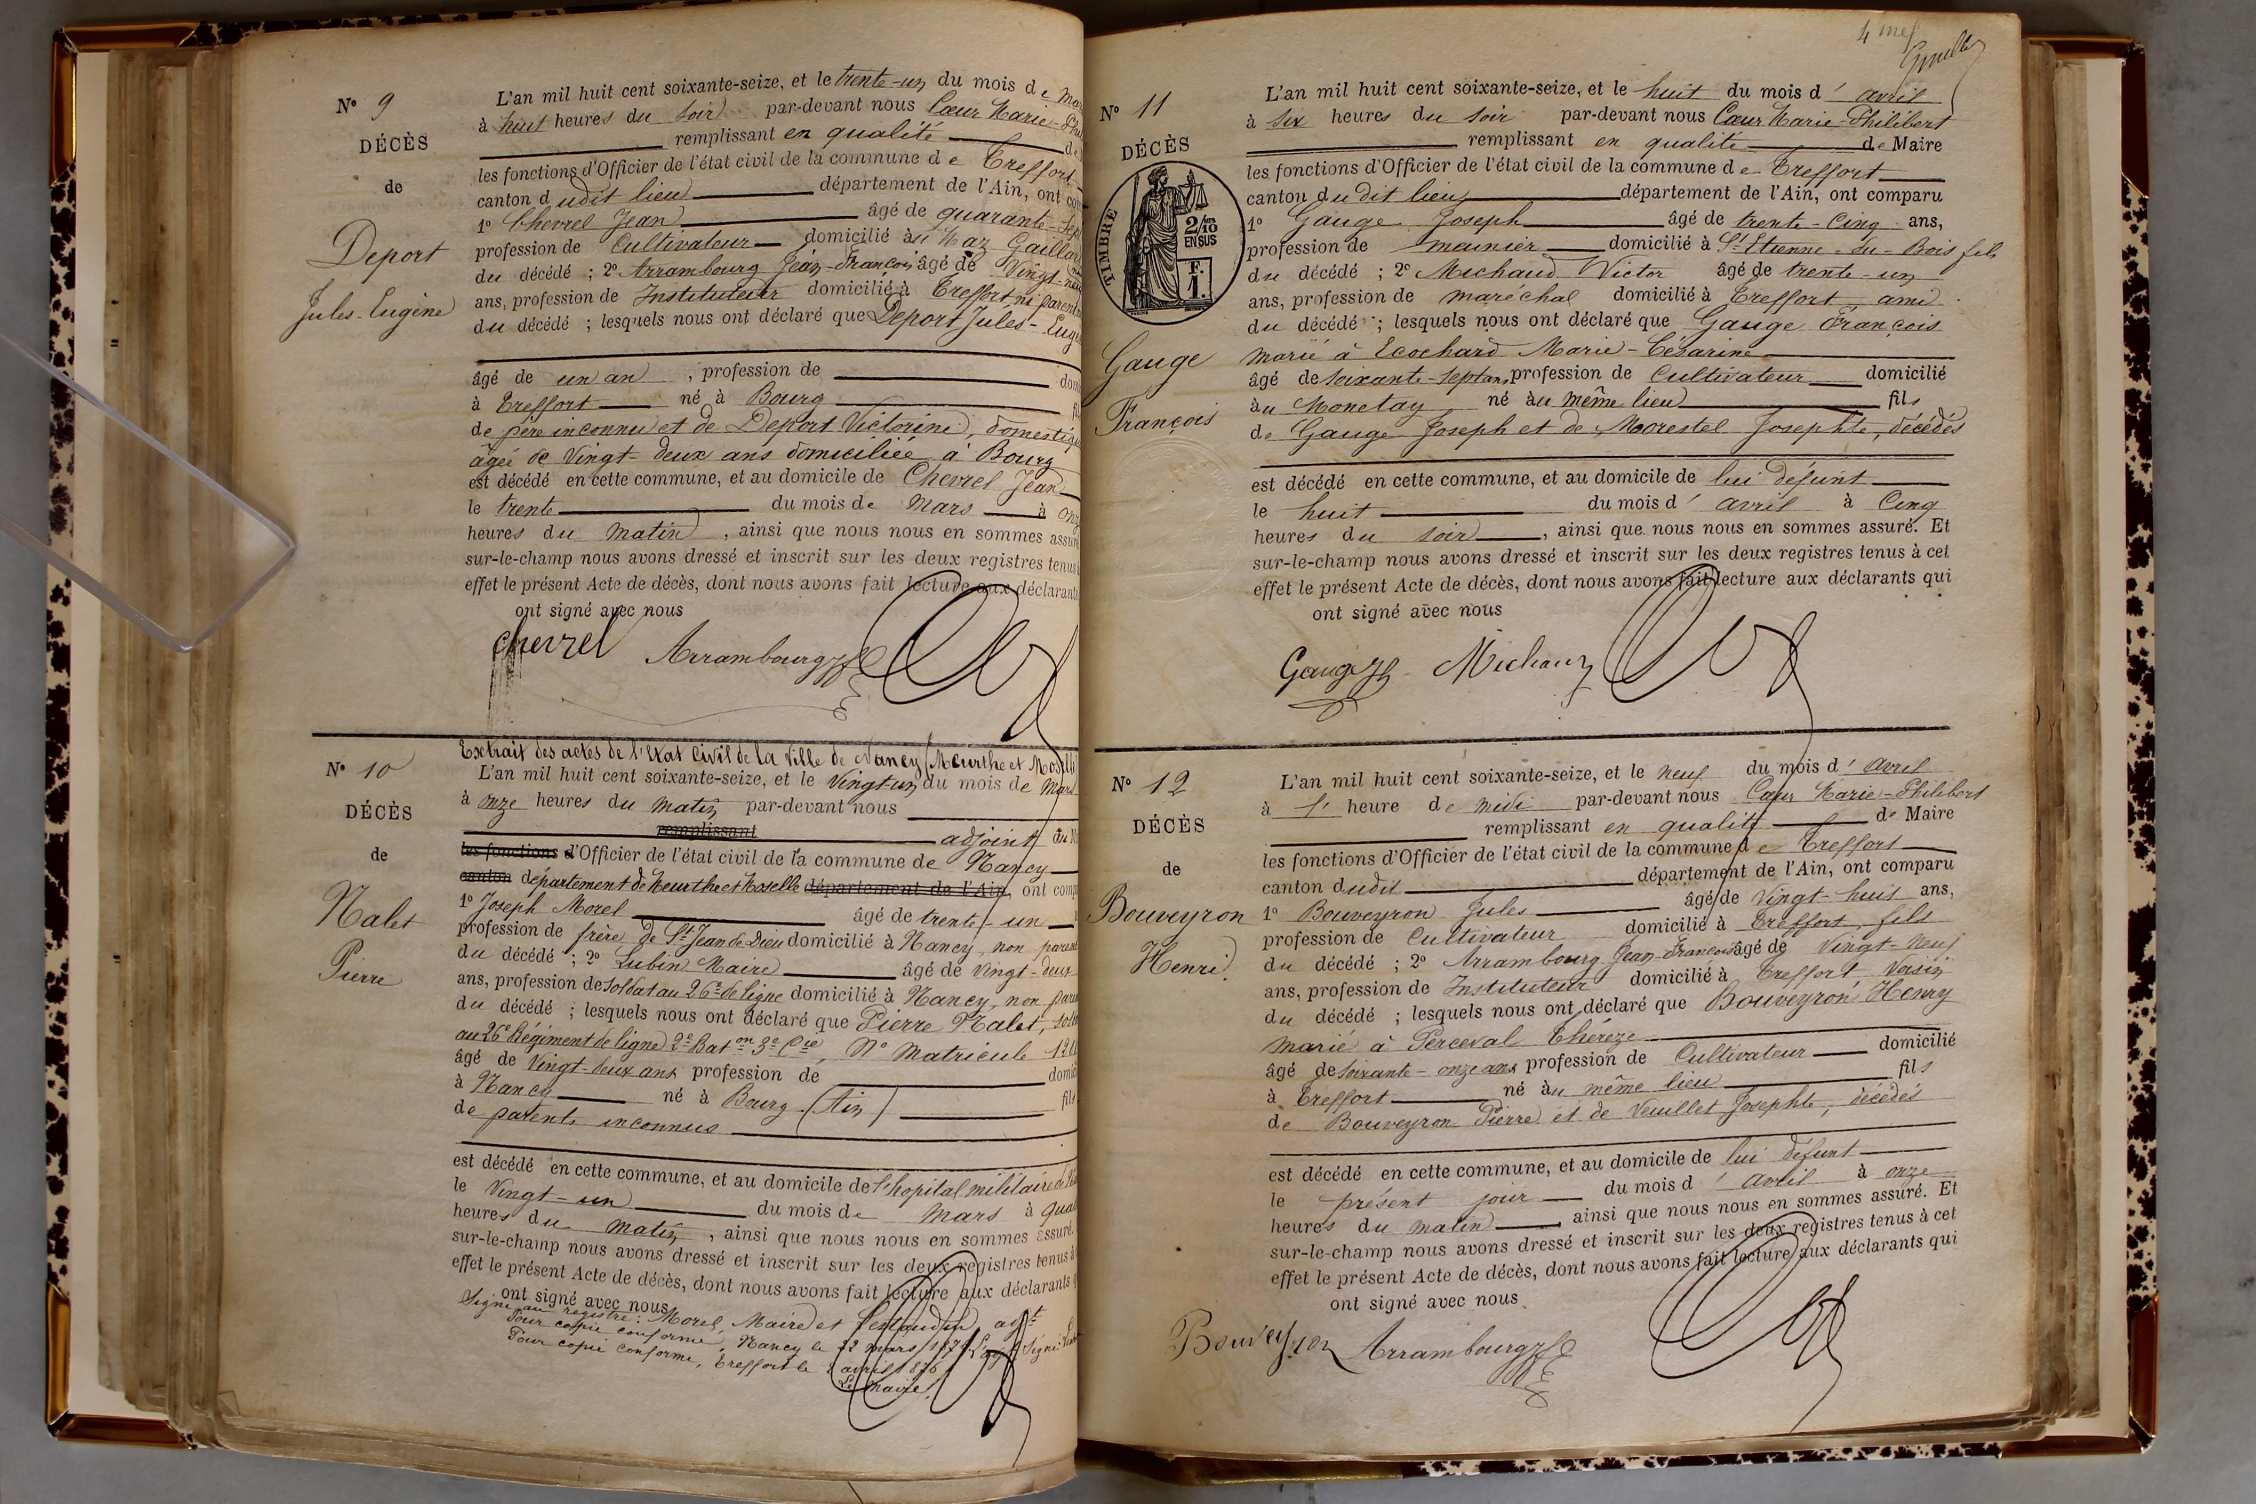 N° 9
DÉCÈS
de
Deport
Jules-Eugène
L'an mil huit cent soixante-seize, et le trente-un du mois de
à huit heures du soir par-devant nous Cœur Marie-
remplissant en qualité de
les fonctions d'Officier de l'état civil de la commune de Treffort
canton dudit lieu département de l'Ain, ont
1° Chevrel Jean âgé de quarante-sept
profession de Cultivateur domicilié à
du décédé ; 2° Arrambourg Jean-François âgé de Vingt-neuf
ans, profession de Instituteur domicilié à Treffort, ni parent
du décédé ; lesquels nous ont déclaré que Deport Jules-
âgé de un an , profession de
à Treffort né à Bourg
de père inconnu et de Deport Victorine, domestique
âgée de Vingt-deux ans domiciliée à Bourg
est décédé en cette commune, et au domicile de Chevrel Jean
le trente du mois de Mars à
heures du matin , ainsi que nous nous en sommes assuré
sur-le-champ nous avons dressé et inscrit sur les deux registres tenus
effet le présent Acte de décès, dont nous avons fait lecture aux déclarants
ont signé avec nous
chevrel Arrambourg
N° 10
DÉCÈS
de
Nalet
Pierre
Extrait des actes de l'Etat Civil de la Ville de Nancy (Meurthe et
L'an mil huit cent soixante-seize, et le Vingt-un du mois de Mars
à onze heures du matin par-devant nous
remplissant adjoint du
les fonctions d'Officier de l'état civil de la commune de Nancy
canton département de Meurthe et Moselle département de l'Ain, ont
1° Joseph Morel âgé de trente-un
profession de frère de St Jean de Dieu domicilié à Nancy, non parent
du décédé ; 2° Lubin Maire âgé de vingt-deux
ans, profession de soldat au 26e de ligne domicilié à Nancy, non
du décédé ; lesquels nous ont déclaré que Pierre Nalet,
au 26e Régiment de ligne 2e Baton 3e Cie, N° Matricule
âgé de Vingt-deux ans profession de
à Nancy né à Bourg (Ain) fils
de parents inconnus
est décédé en cette commune, et au domicile de l'hopital militaire
le Vingt-un du mois de Mars à
heures du matin , ainsi que nous nous en sommes assuré.
sur-le-champ nous avons dressé et inscrit sur les deux registres tenus à
effet le présent Acte de décès, dont nous avons fait lecture aux déclarants
ont signé avec nous
Signé au registre : Morel, Maire et
Pour copie conforme, Nancy le 22 mars
Pour copie conforme, Treffort le avril 1876
Le Maire
N° 11
DÉCÈS
TIMBRE
2/10
EN SUS
F.
1.
Gauge
François
L'an mil huit cent soixante-seize, et le huit du mois d'avril
à six heures du soir par-devant nous Cœur Marie-Philibert
remplissant en qualité de Maire
les fonctions d'Officier de l'état civil de la commune de Treffort
canton dudit lieu département de l'Ain, ont comparu
1° Gauge Joseph âgé de trente-cinq ans,
profession de meunier domicilié à St Etienne-du-Bois fils
du décédé ; 2° Michaud Victor âgé de trente-un
ans, profession de maréchal domicilié à Treffort, ami
du décédé ; lesquels nous ont déclaré que Gauge François
marié à Ecochard Marie-Césarine
âgé de soixante-sept ans profession de Cultivateur domicilié
au Monetay né au même lieu fils
de Gauge Joseph et de Morestel Josephte, décédés
est décédé en cette commune, et au domicile de lui défunt
le huit du mois d'avril à Cinq
heures du soir , ainsi que nous nous en sommes assuré. Et
sur-le-champ nous avons dressé et inscrit sur les deux registres tenus à cet
effet le présent Acte de décès, dont nous avons fait lecture aux déclarants qui
ont signé avec nous
Gauge Michaud
N° 12
DÉCÈS
de
Bouveyron
Henri
L'an mil huit cent soixante-seize, et le neuf du mois d'avril
à heure de midi par-devant nous Cœur Marie-Philibert
remplissant en qualité de Maire
les fonctions d'Officier de l'état civil de la commune de Treffort
canton dudit département de l'Ain, ont comparu
1° Bouveyron Jules âgé de Vingt-huit ans,
profession de Cultivateur domicilié à Treffort, fils
du décédé ; 2° Arrambourg Jean-François âgé de Vingt-neuf
ans, profession de Instituteur domicilié à Treffort Voisin
du décédé ; lesquels nous ont déclaré que Bouveyron Henry
marié à Perceval Thérèze
âgé de soixante-onze ans profession de Cultivateur domicilié
à Treffort né au même lieu fils
de Bouveyron Pierre et de Veuillet Josephte, décédés
est décédé en cette commune, et au domicile de lui défunt
le présent jour du mois d'avril à onze
heures du matin , ainsi que nous nous en sommes assuré. Et
sur-le-champ nous avons dressé et inscrit sur les deux registres tenus à cet
effet le présent Acte de décès, dont nous avons fait lecture aux déclarants qui
ont signé avec nous
Bouveyron Arrambourg